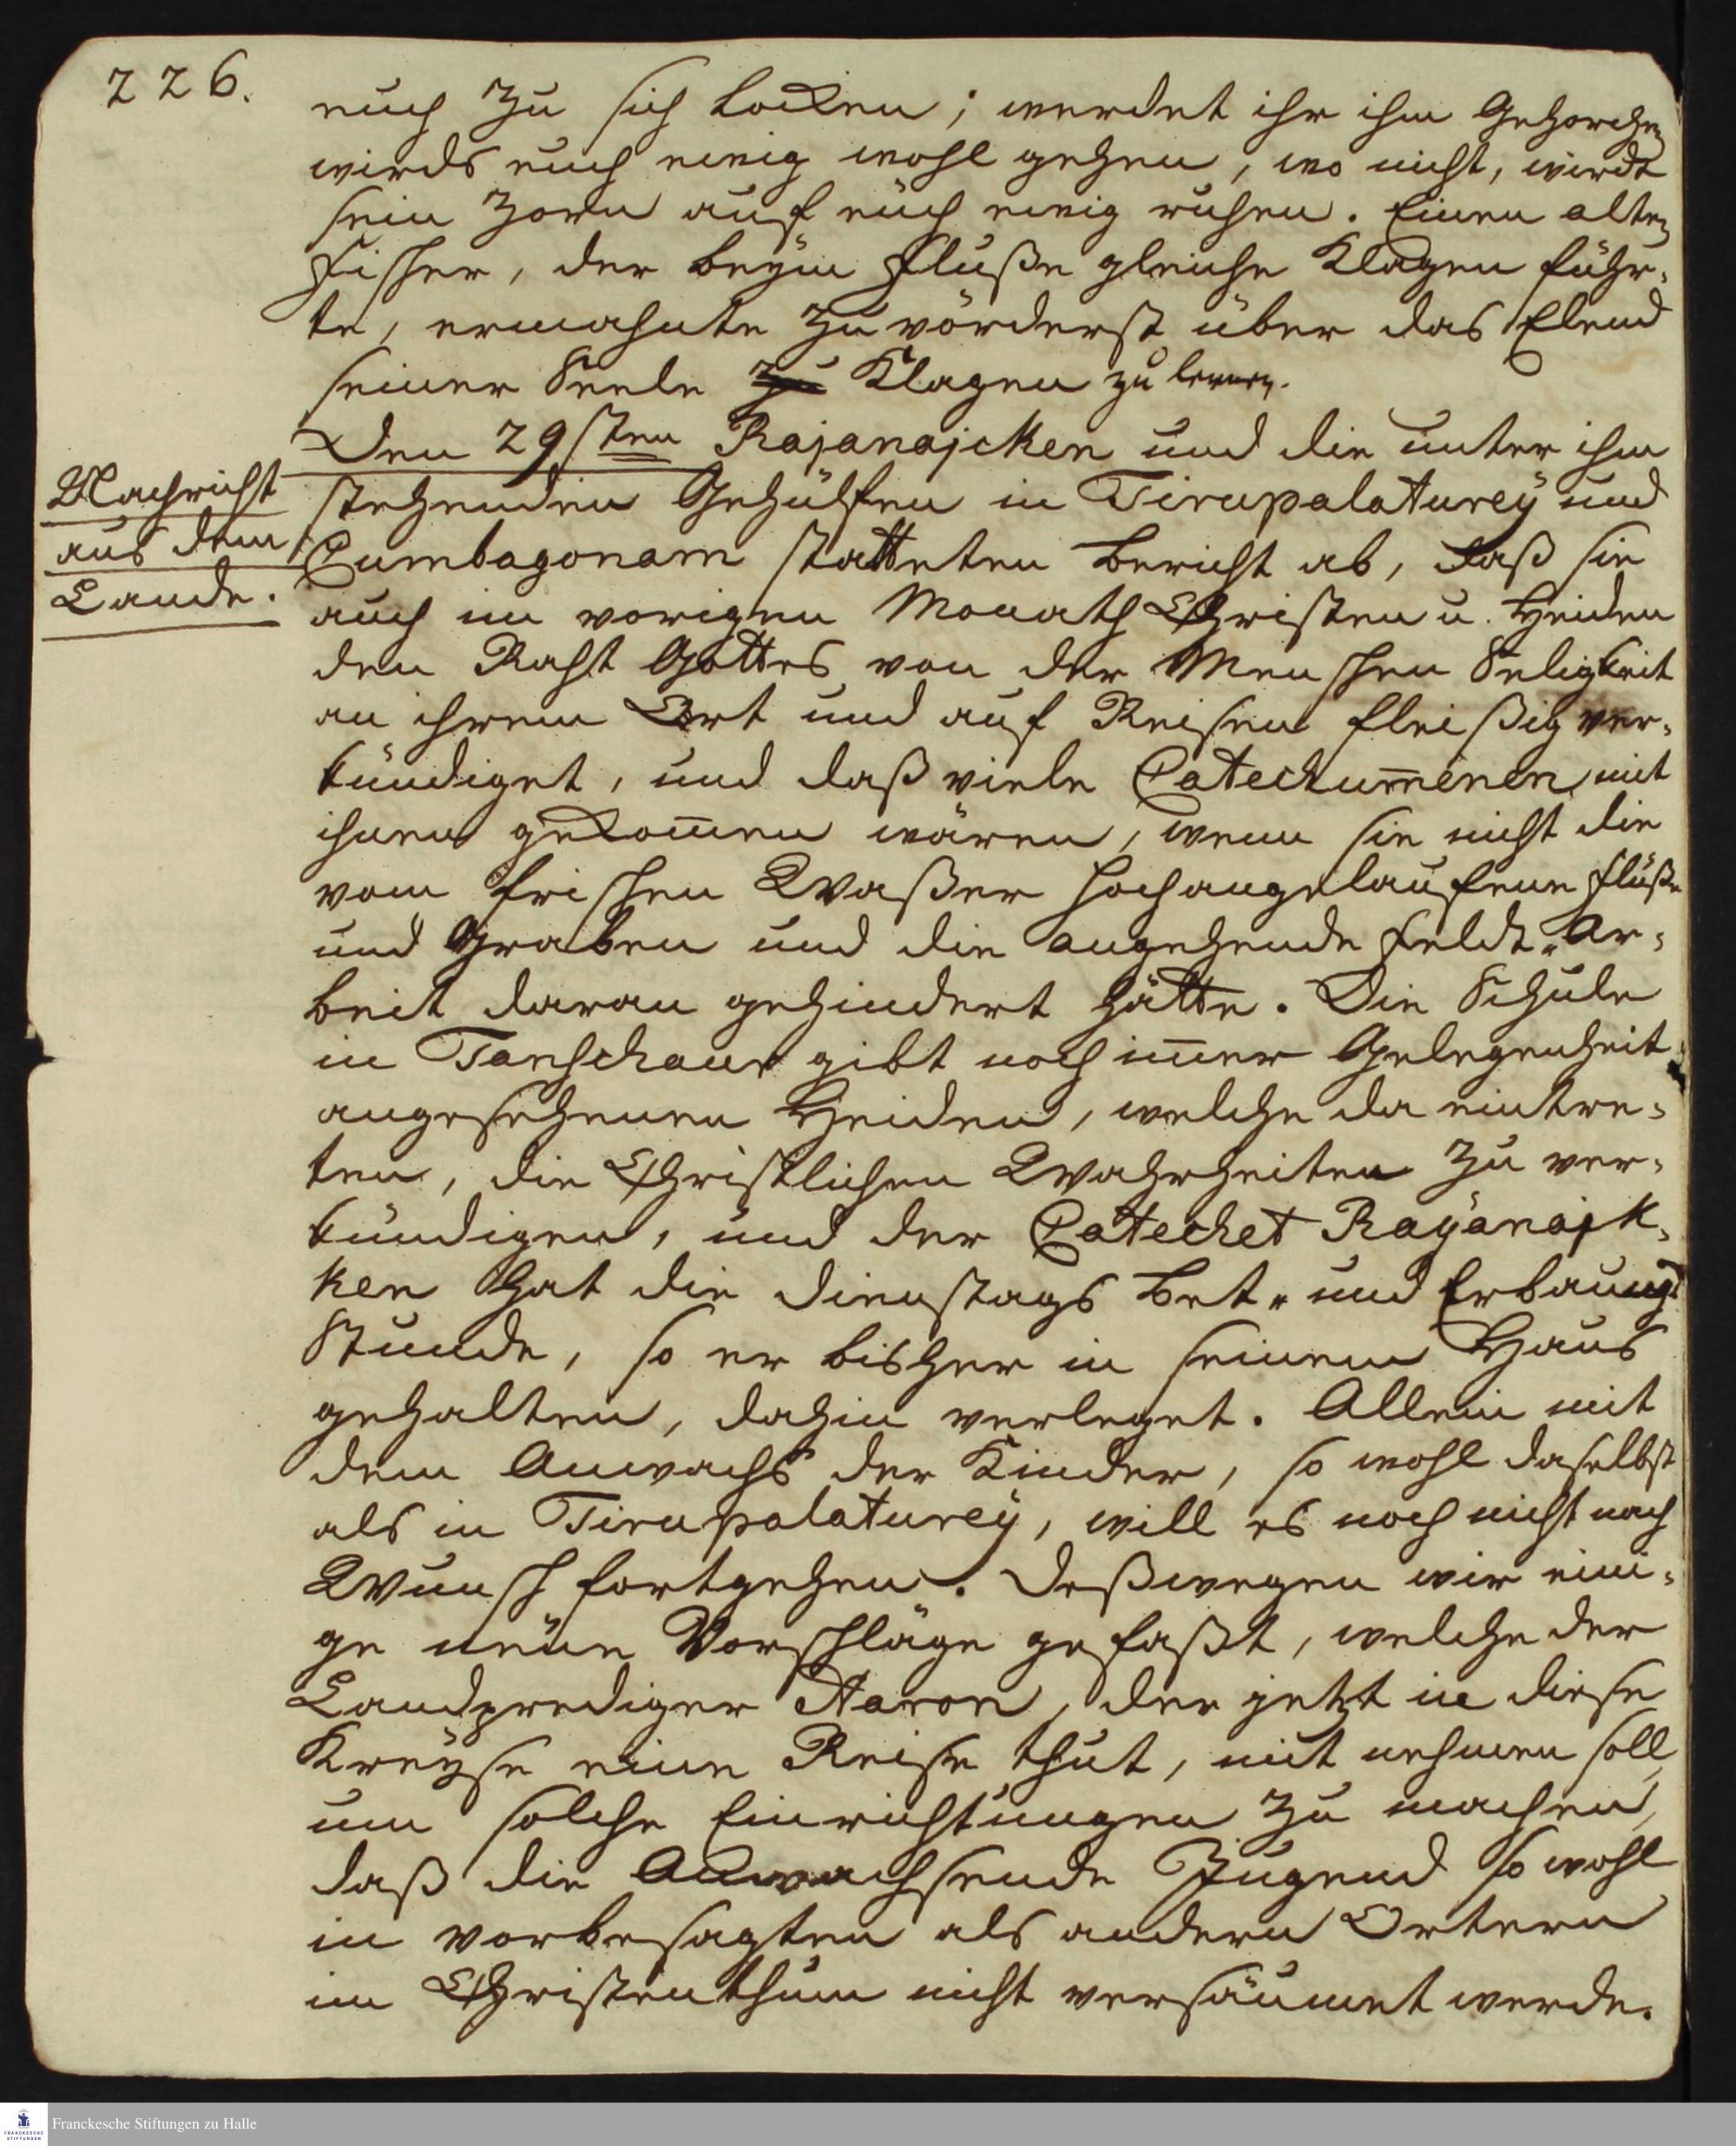 226.
euch zu sich locken; werdet ihr ihm Gehorchen
wirds euch ewig wohl gehen, wo nicht, wirdt
sein Zorn auf euch ewig ruhen. Einen alten
Fischer, der beÿm Fluße gleiche Klagen führ=
te, ermahnte zuvörderst über das Elend
seiner Seele zu Klagen zu lernen.
Den 29sten Rajanajcken und die unter ihm
Nachricht
aus dem
Lande.
stehenden Gehülfen in Tirupalaturey und
Cumbagonam statteten Bericht ab, daß sie
auch im vorigen Monath Christen u. Heiden
den Raht Gottes von der Menschen Seligkeit
an ihrem Ort und auf Reisen fleißig ver=
kündiget, und daß viele Catechumenen mit
ihnen gekom̄en wären, wenn sie nicht die
vom frischen Waßer hochangelaufene Flüße
und Graben und die angehende Feldt-Ar=
beit daran gehindert hätte. Die Schule
in Tanschaur gibt noch im̄er Gelegenheit
angesehenen Heiden, welche da eintre=
ten, die Christlichen Wahrheiten zu ver=
kündigen, und der Catechet Raÿanajk=
ken hat die Dienstags Bet- und Erbauungs
Stunde, so er bisher in seinem Haus
gehalten, dahin verleget. Allein mit
dem Anwachs der Kinder, so wohl daselbst
als in Tirupalaturey, will es noch nicht nach
Wunsch fortgehen. Deßwegen wir eini=
ge neue Vorschläge gefaßt, welche der
Landprediger Aaron, der jetzt in diese
Kreyse eine Reise thut, mit nehmen soll,
um solche Einrichtungen zu machen,
daß die Anwachsende Jugend so wohl
in vorbesagten als andern Ortern
im Christenthum nicht versäumet werde.
Franckesche Stiftungen zu Halle
FRANCKESCHE
STIFTUNGEN